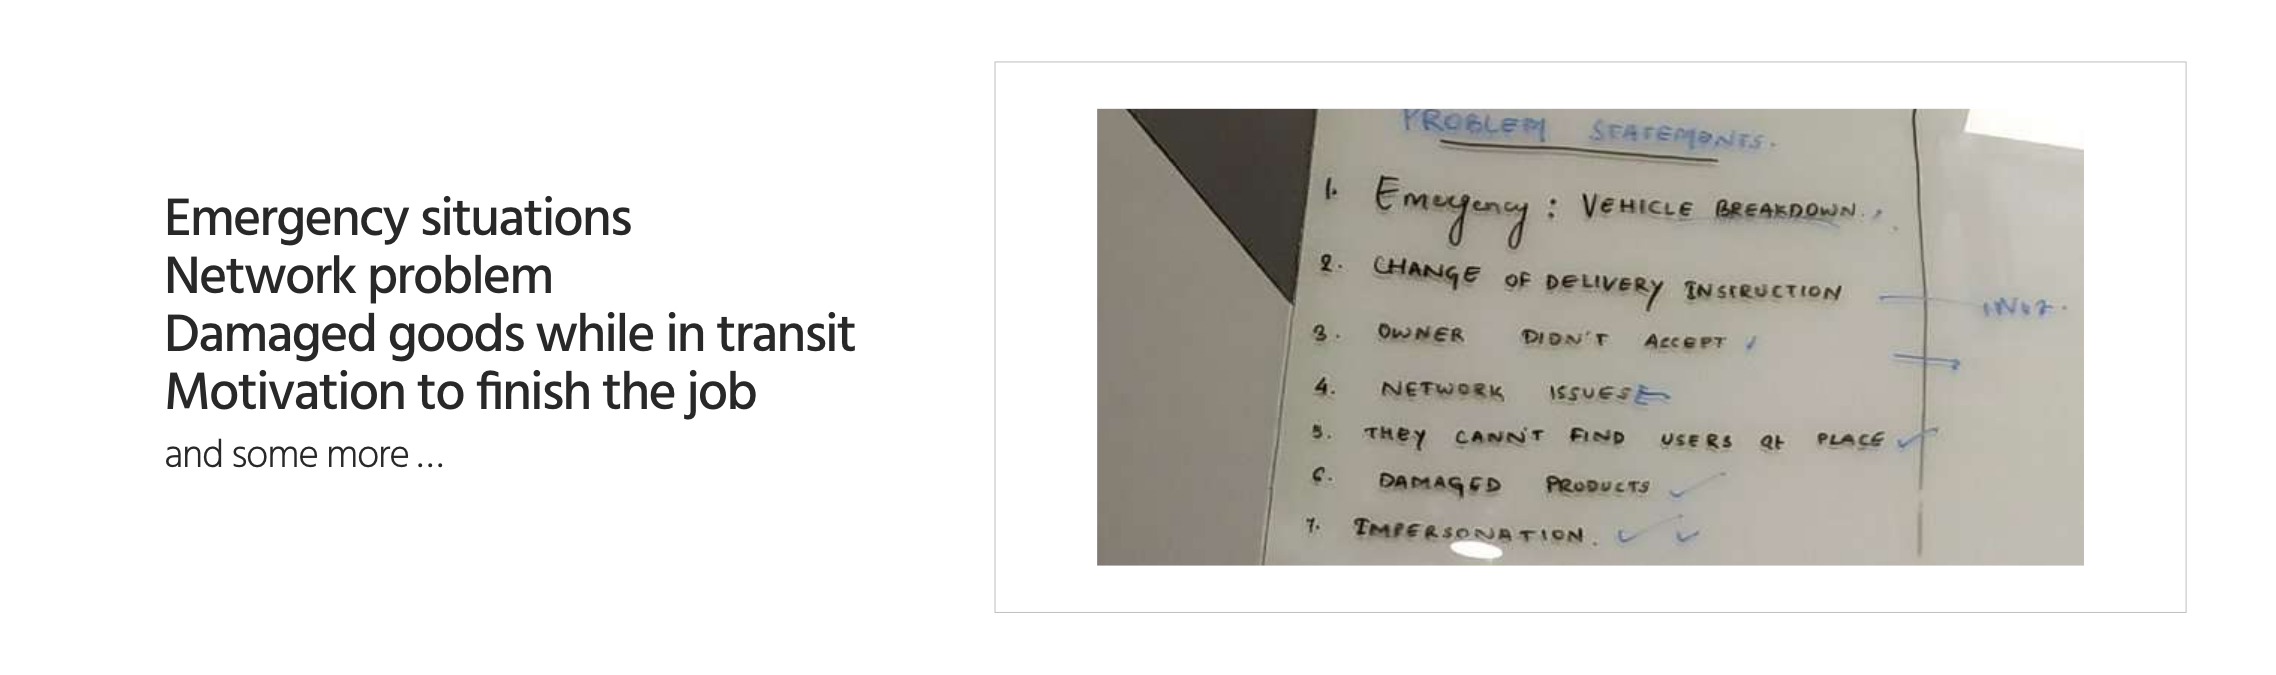 Emergency situations
Network problem
Damaged goods while in transit
Motivation to finish the job
and some more ...
PROBLEM STATEMENTS.
1. Emergency : VEHICLE BREAKDOWN.
2. CHANGE OF DELIVERY INSTRUCTION
3. OWNER DIDN'T ACCEPT
4. NETWORK ISSUES
5. THEY CANN'T FIND USERS at PLACE
6. DAMAGED PRODUCTS
7. IMPERSONATION.